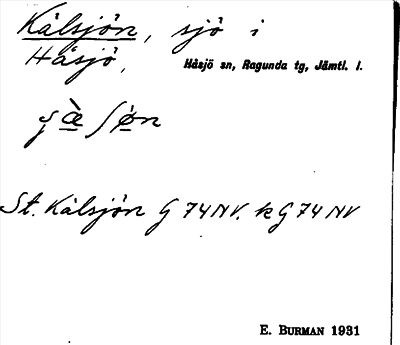 Kålsjön, sjö i
Håsjö,
Håsjö sn, Ragunda tg, Jämtl. l.
St. Kålsjön G 74 NV. k G 74 NV
E. BURMAN 1931